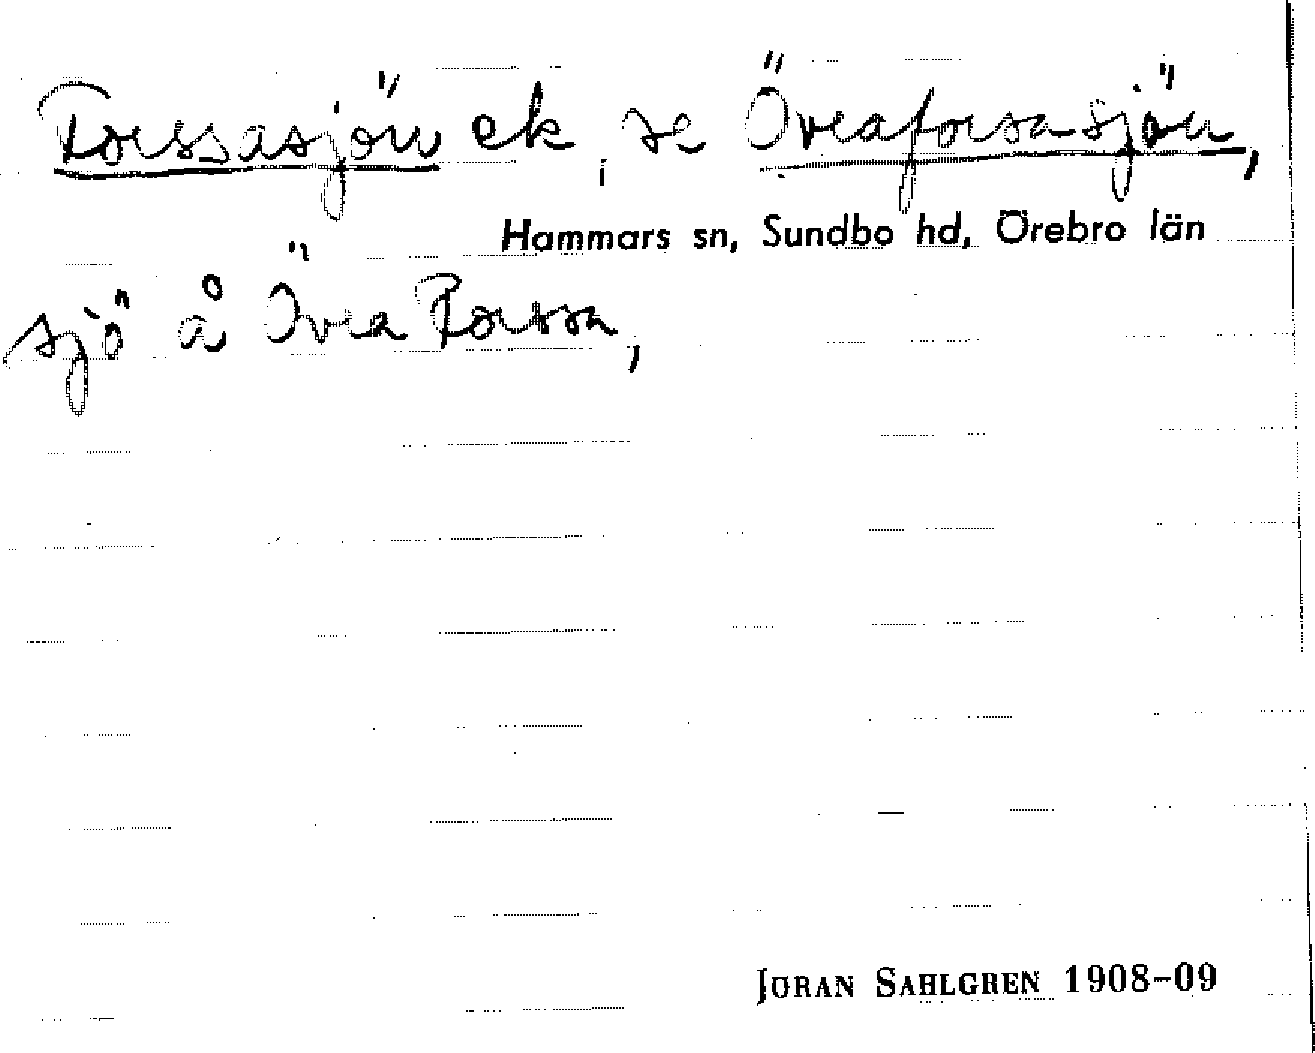 Forssasjön ek, se Övraforssasjön,
Hammars sn, Sundbo hd, Örebro län
sjö å Övra Forssa,
JÖRAN SAHLGREN 1908-09